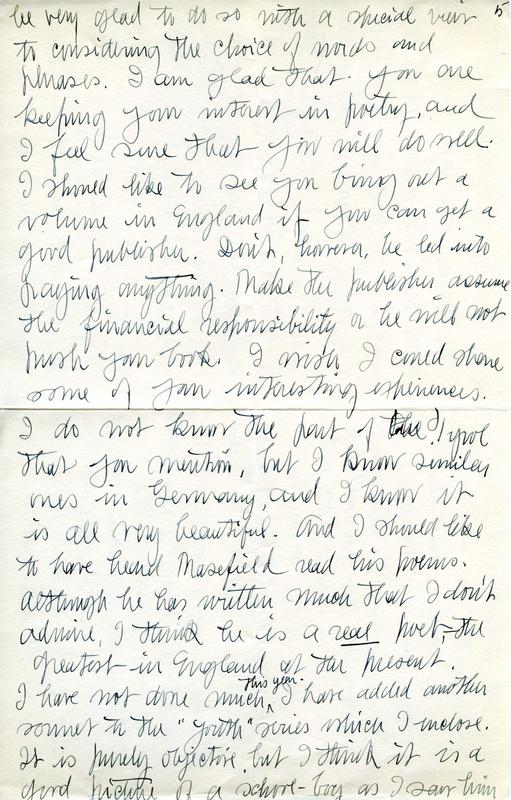 5
be very glad to do so with a special view
to considering the choice of words and
phrases. I am glad that you are
keeping your interest in poetry, and
I feel sure that you will do well.
I should like to see you bring out a
volume in England if you can get a
good publisher. Don't, however, be led into
paying anything. Make the publisher assume
the financial responsibility or he will not
push your book. I wish I could share
some of your interesting experiences.
I do not know the part of the Tyrol
that you mention, but I know similar
ones in Germany, and I know it
is all very beautiful. And I should like
to have heard Masefield read his poems.
Although he has written much that I don't
admire, I think he is a real poet, the
greatest in England at the present.
I have not done much this year. I have added another
sonnet to the "Youth" series which I inclose.
It is purely objective but I think it is a
good picture of a school-boy as I saw him